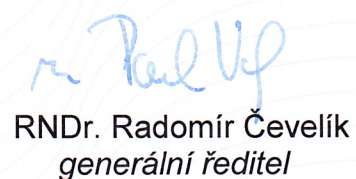 RNDr. Radomír Čevelík
generální ředitel